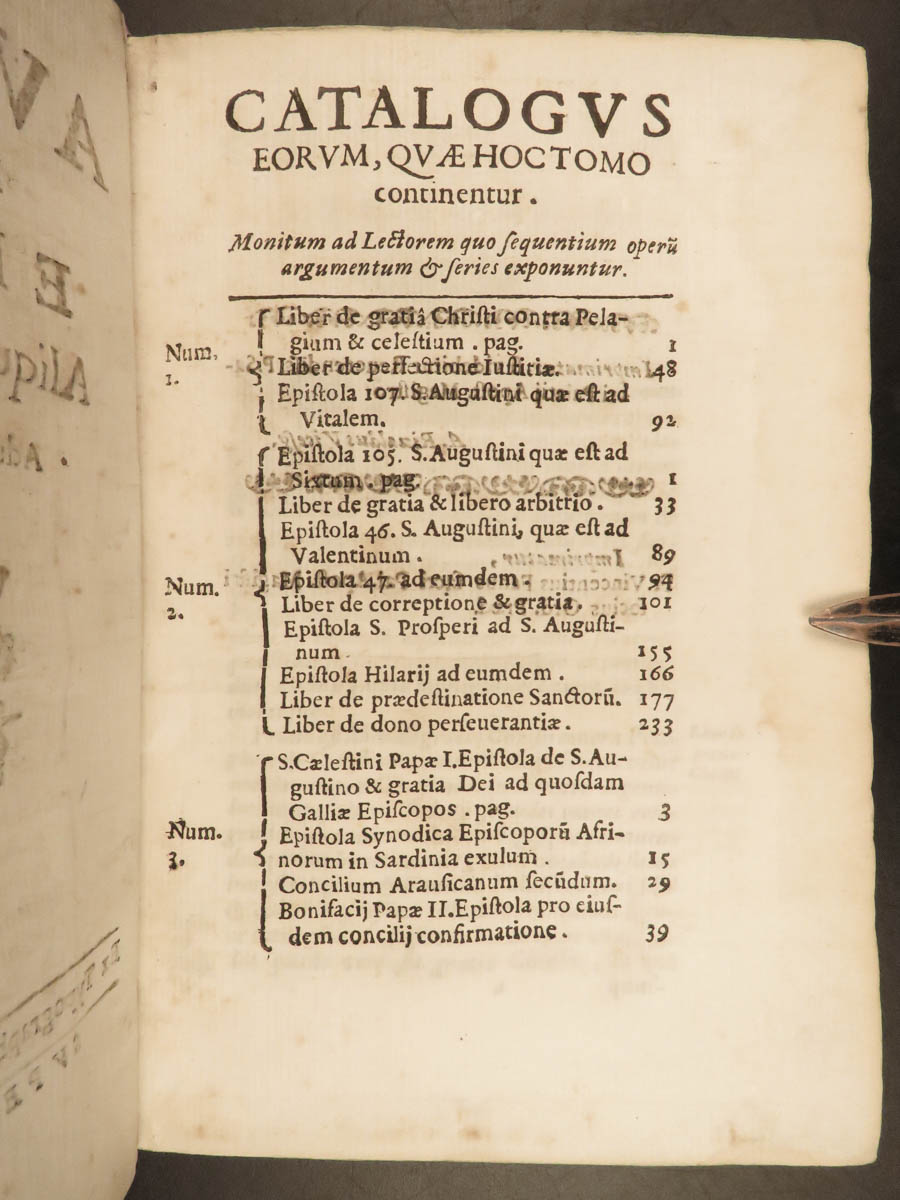 CATALOGVS
EORVM, QVÆ HOC TOMO
continentur.
Monitum ad Lectorem quo ſequentium operũ
argumentum & ſeries exponuntur.
Num. 1.
Liber de gratiâ Chriſti contra Pela-
gium & celeſtium. pag. 1
Liber de perfectione Iuſtitiæ. 48
Epiſtola 107. S. Auguſtini quæ eſt ad
Vitalem. 92
Num. 2.
Epiſtola 105. S. Auguſtini quæ eſt ad
Sixtum. pag. 1
Liber de gratia & libero arbitrio. 33
Epiſtola 46. S. Auguſtini, quæ eſt ad
Valentinum. 89
Epiſtola 47. ad eumdem. 94
Liber de correptione & gratia. 101
Epiſtola S. Proſperi ad S. Auguſti-
num. 155
Epiſtola Hilarij ad eumdem. 166
Liber de prædeſtinatione Sanctorũ. 177
Liber de dono perſeuerantiæ. 233
Num. 3.
S. Cæleſtini Papæ I. Epiſtola de S. Au-
guſtino & gratia Dei ad quoſdam
Galliæ Epiſcopos. pag. 3
Epiſtola Synodica Epiſcoporũ Afri-
norum in Sardinia exulum. 15
Concilium Arauſicanum ſecũdum. 29
Bonifacij Papæ II. Epiſtola pro eiuſ-
dem concilij confirmatione. 39